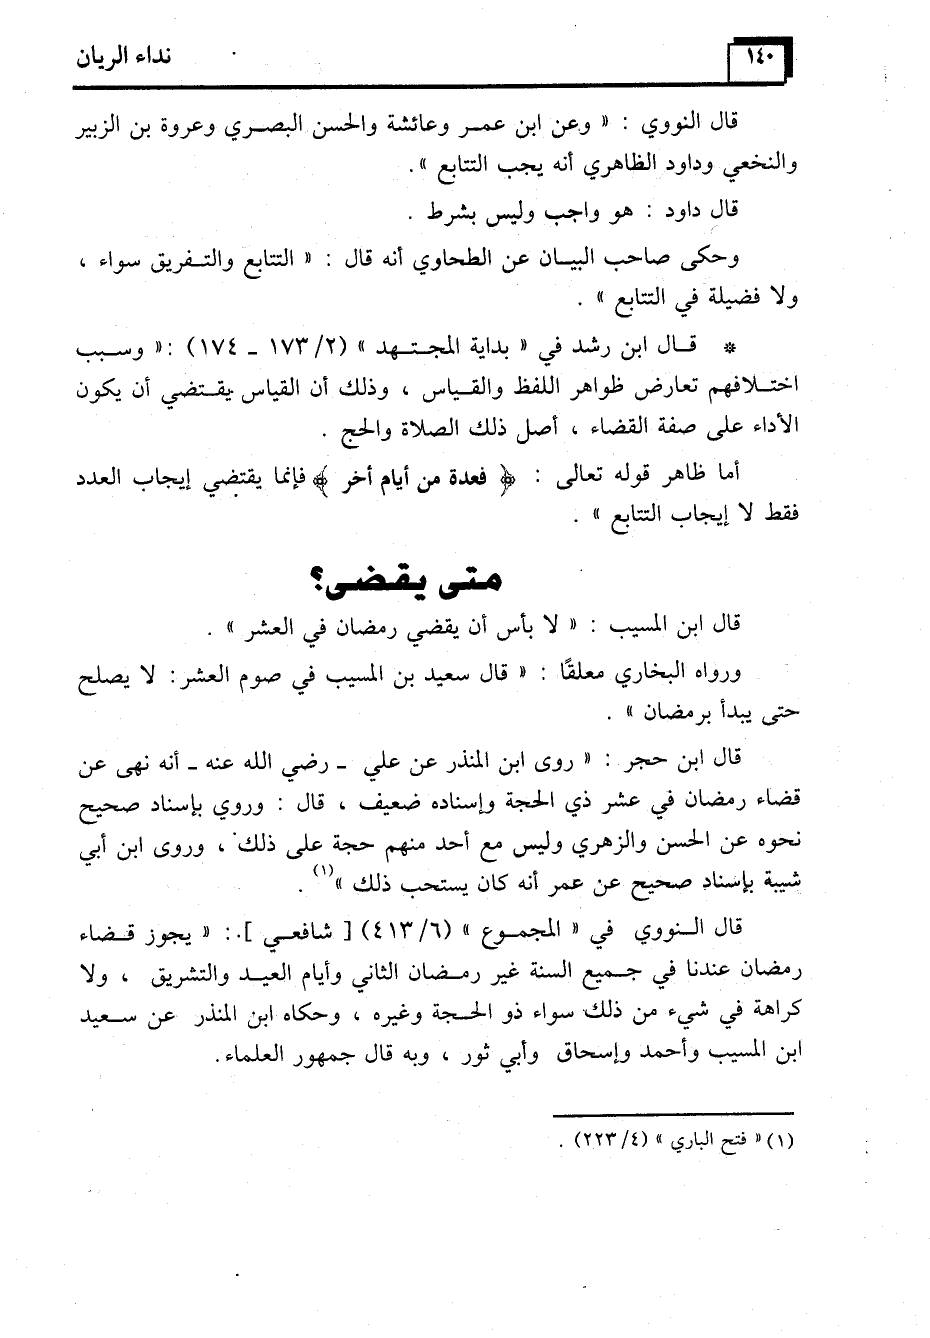 ١٤٠ نداء الريان
قال النووي : « وعن ابن عمر وعائشة والحسن البصري وعروة بن الزبير
والنخعي وداود الظاهري أنه يجب التتابع » .
قال داود : هو واجب وليس بشرط .
وحكى صاحب البيان عن الطحاوي أنه قال : « التتابع والتفريق سواء ،
ولا فضيلة في التتابع » .
* قال ابن رشد في « بداية المجتهد » (٢/ ١٧٣ - ١٧٤) : « وسبب
اختلافهم تعارض ظواهر اللفظ والقياس ، وذلك أن القياس يقتضي أن يكون
الأداء على صفة القضاء ، أصل ذلك الصلاة والحج .
أما ظاهر قوله تعالى : ﴿ فعدة من أيام أخر ﴾ فإنما يقتضي إيجاب العدد
فقط لا إيجاب التتابع » .
متى يقضى؟
قال ابن المسيب : « لا بأس أن يقضي رمضان في العشر » .
ورواه البخاري معلقًا : « قال سعيد بن المسيب في صوم العشر : لا يصلح
حتى يبدأ برمضان » .
قال ابن حجر : « روى ابن المنذر عن علي - رضي الله عنه - أنه نهى عن
قضاء رمضان في عشر ذي الحجة وإسناده ضعيف ، قال : وروي بإسناد صحيح
نحوه عن الحسن والزهري وليس مع أحد منهم حجة على ذلك ، وروى ابن أبي
شيبة بإسناد صحيح عن عمر أنه كان يستحب ذلك »(١) .
قال النووي في « المجموع » (٦/ ٤١٣) [ شافعي ] : « يجوز قضاء
رمضان عندنا في جميع السنة غير رمضان الثاني وأيام العيد والتشريق ، ولا
كراهة في شيء من ذلك سواء ذو الحجة وغيره ، وحكاه ابن المنذر عن سعيد
ابن المسيب وأحمد وإسحاق وأبي ثور ، وبه قال جمهور العلماء .
(١) « فتح الباري » (٤/ ٢٢٣) .